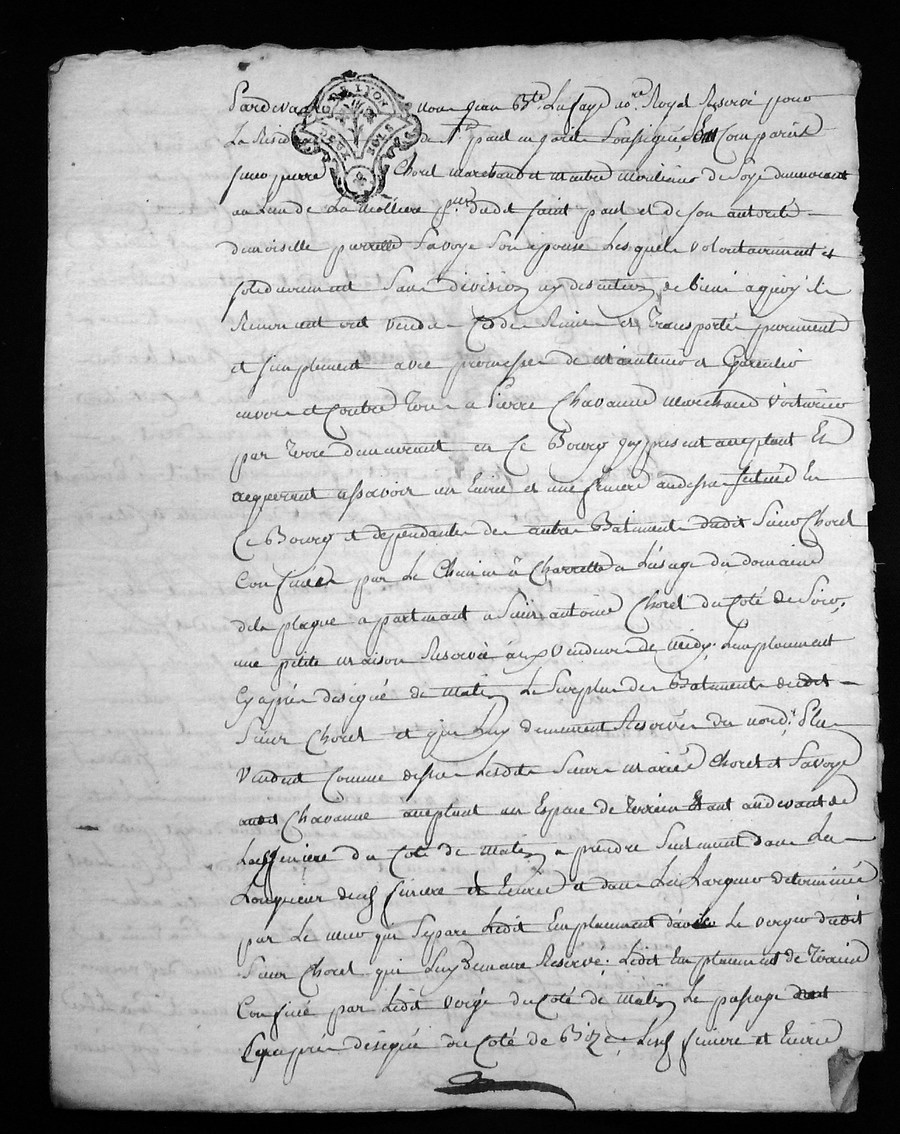 Pardevant nous Jean Bte Lafaye nore Royal Reservé pour
La Resid de St paul en Jarès Soussigné Est Comparut
sieur pierre Choret Marchand et Maitre moulinier de Soye demeurant
au Lieu de La Mollière psse dudit saint paul et de son autorité
demoiselle pierrette Savoye Son épouse Lesquels volontairement et
solidairement Sans division ny discution de biens aquoy ils
Renoncent ont vendu Cedé Remis et Transporté purement
et simplement avec promesse de maintenir et Garentir
envers et Contre Tous a Pierre Chavanne Marchand Voiturier
par Terre demeurant en Ce Bourg icy present acceptant Et
acquerant assavoir un Ecurie et une feniere audessus situés En
Ce Bourg et dependants des autres Batiments dudit Sieur Choret
Confinés par Le Chemin à Charrette a L'usage du domaine
dela plagne apartenant a Sieur antoine Choret du Coté de Soir,
une petite maison Reservée aux Vendeurs de midy, L'emplacement
Cy après designé de matin Le Surplus des Batiments dudit
Sieur Choret et qui Luy demeurent Reservés du nord. Plus
Vendent Comme dessus Lesdits Sieurs mariés Choret et Savoye
audit Chavanne acceptant un Espace de Terrain Etant audevant de
La ffeniere du Coté de Matin a prendre Seulement dans La
Longueur desd feniere et Ecurie et dans La Largeur determinée
par Le mur qui Separe Ledit Emplacement davec Le verger dudit
Sieur Choret qui Luy demeure Reservé; Ledit Emplacement de Terrain
Confiné par Ledit Vergé du Coté de Matin Le passage
Cy après designé du Coté de Bize, Lesd feniere et Ecurie
DE LYON
DEUX SOLS